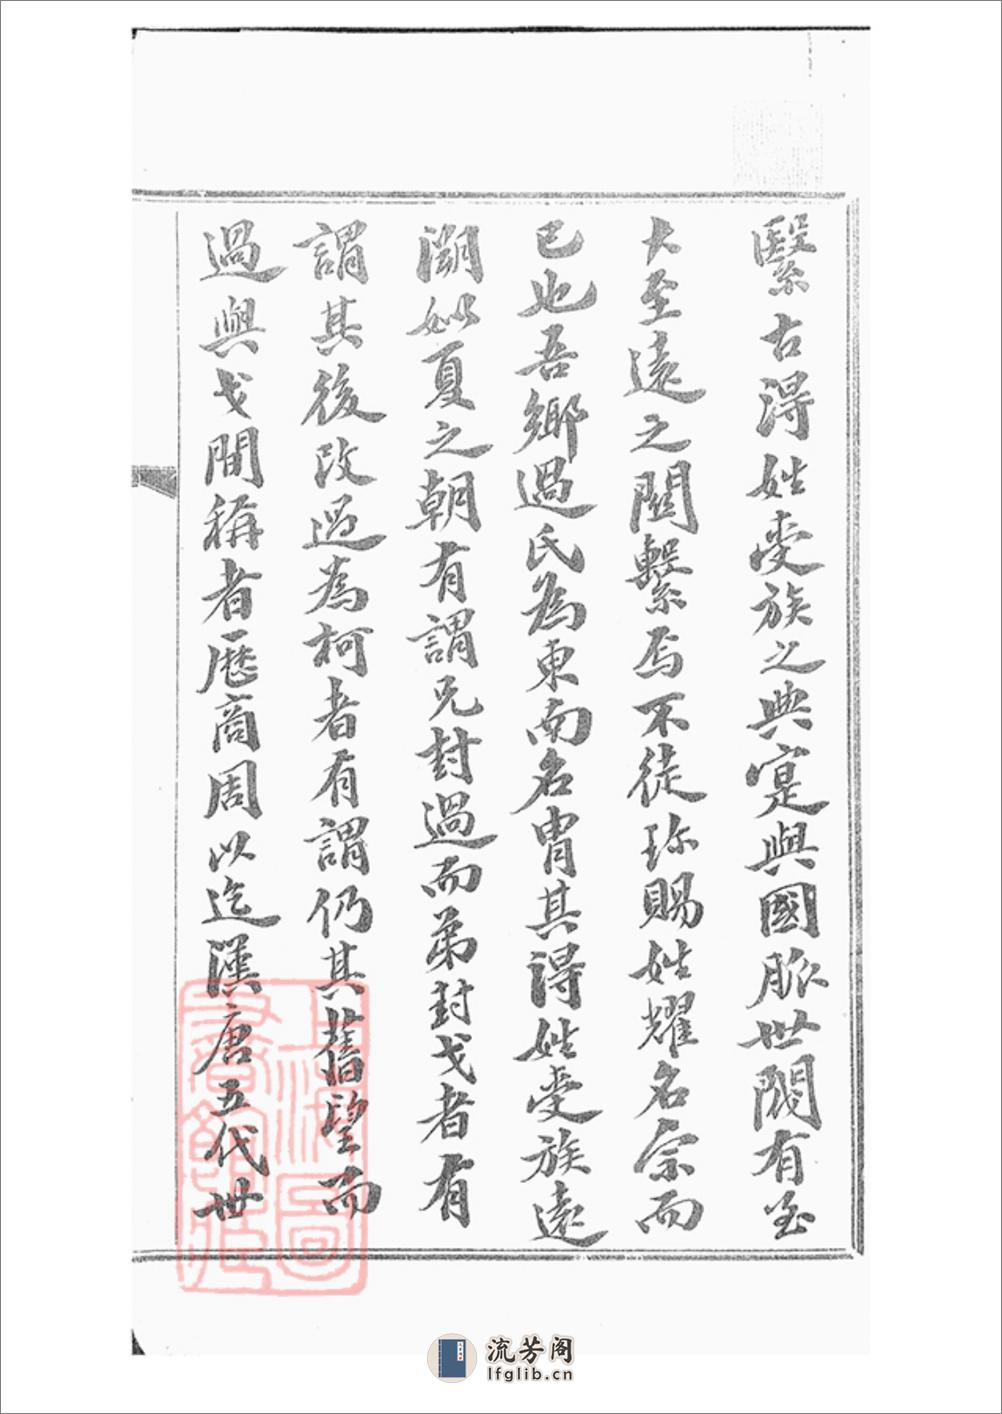 繄古淂姓受族之典寔與國脈世閥有至
大至遠之關繫焉不徒珎賜姓耀名宗而
已也吾鄉過氏為東南名胄其淂姓受族遠
溯姒夏之朝有謂兄封過而弟封戈者有
謂其後改過為柯者有謂仍其舊望而
過與戈間稱者歷商周以迄漢唐五代世
上海圖書館藏
流芳阁
lfglib.cn